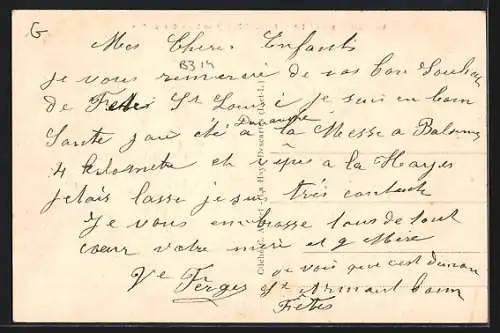 G
Mes Chers Enfants
B314
je vous remercie de vos bon Souhai
de Fetes St Louis je suis en bonn
Santé jai été a la Messe a Balesmes
Dimanche
4 kilometre et a la Hayes
jetais lasse je sui très contente
Je vous embrasse tous de tout
cœur votre mère et g Mère
Ve Ferges
je vois que c'est demain
St Armand bonn
Fêtes
La Haye-Descartes (I.-et-L.)